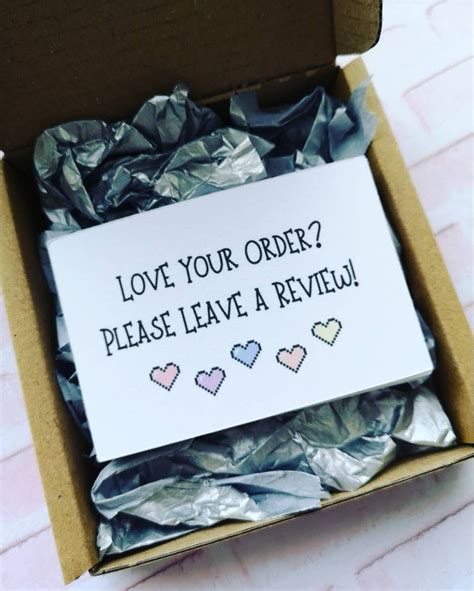 LOVE YOUR ORDER?
PLEASE LEAVE A REVIEW!